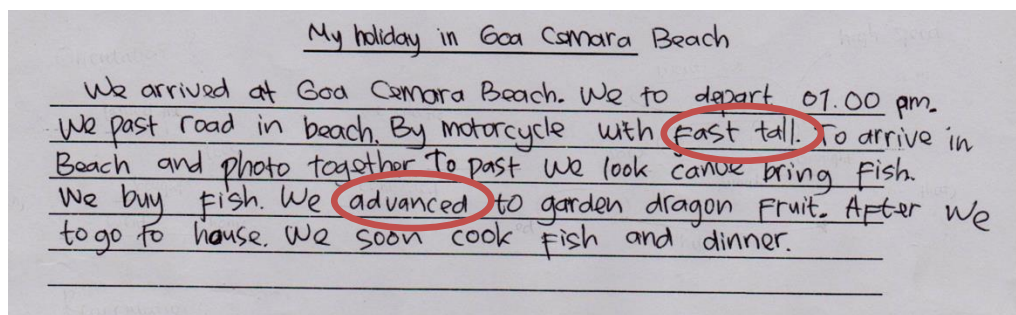 My holiday in Goa Csmara Beach
We arrived at Goa Cemara Beach. We to depart 01.00 pm.
We past road in beach. By motorcycle with Fast tall. To arrive in
Beach and photo together To past we look canoe bring Fish.
We buy Fish. We advanced to garden dragon Fruit. After we
to go to house. We soon cook Fish and dinner.